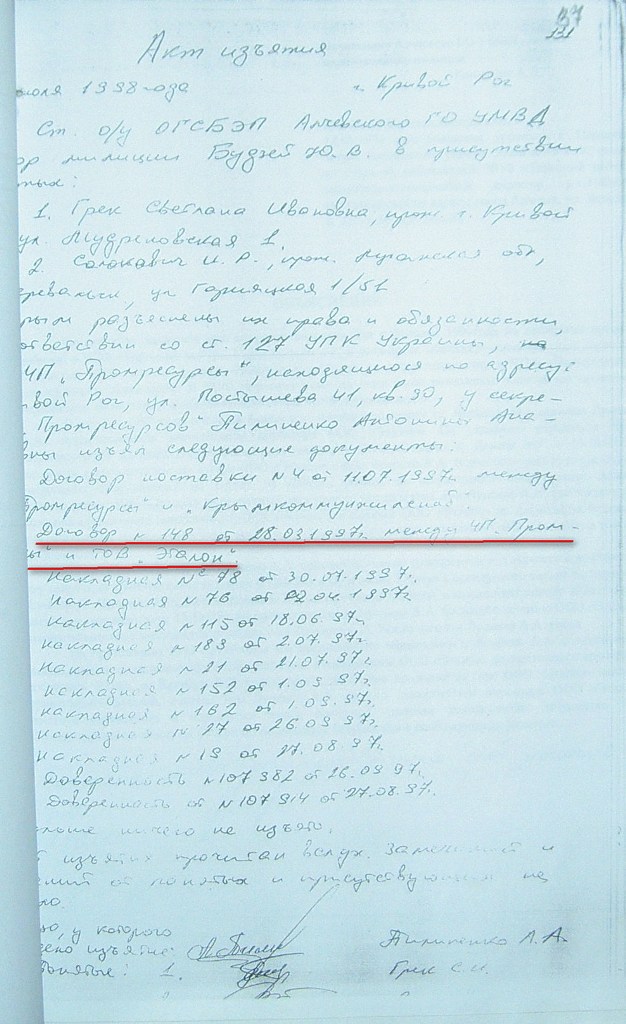 37
131
Акт изъятия
июля 1998 года г. Кривой Рог
Ст. о/у ОГСБЭП Алчевского ГО УМВД
ор милиции Будзей Ю. В. в присутствии
тых:
1. Грек Светлана Ивановна, прож. г. Кривой
ул. Мудреновская 1.
2. И. Р., прож. Луганская обл,
еревальск, ул Горняцкая 1/51
рым разъяснены их права и обязанности,
ответствии со ст. 127 УПК Украины, на
ЧП „Промресурсы“, находящегося по адресу:
ивой Рог, ул. Постышева 41, кв. 90, у секре-
Промресурсов“ Пилипенко Антонины Ана-
вны изъял следующие документы:
Договор поставки N4 от 11.07.1997г. между
Промресурсы“ и „
Договор N 148 от 28.03.1997г. между ЧП „Пром-
ы“ и ТОВ „Эталон“.
Накладная № 78 от 30.07.1997г.
Накладная N 76 от 02.04.1997г
Накладная N 115 от 18.06.97г.
накладная N 183 от 2.07.97г.
Накладная N 21 от 21.07.97г.
накладная N 152 от 1.09.97г.
накладная N 162 1.09.97г.
накладная N 27 от 26 09 97г.
накладная N 19 от 27.08 97г.
Доверенность N 107 382 от 26.09 97г.
Доверенность от N 107 914 от 27.08.97г.
ольше ничего не изъято.
т изъятия прочитан вслух. Замечаний и
ений от понятых и присутствующих не
ло.
о, у которого
ено изъятие: Пилипенко А. А.
Понятые: 1. Грек С.И.